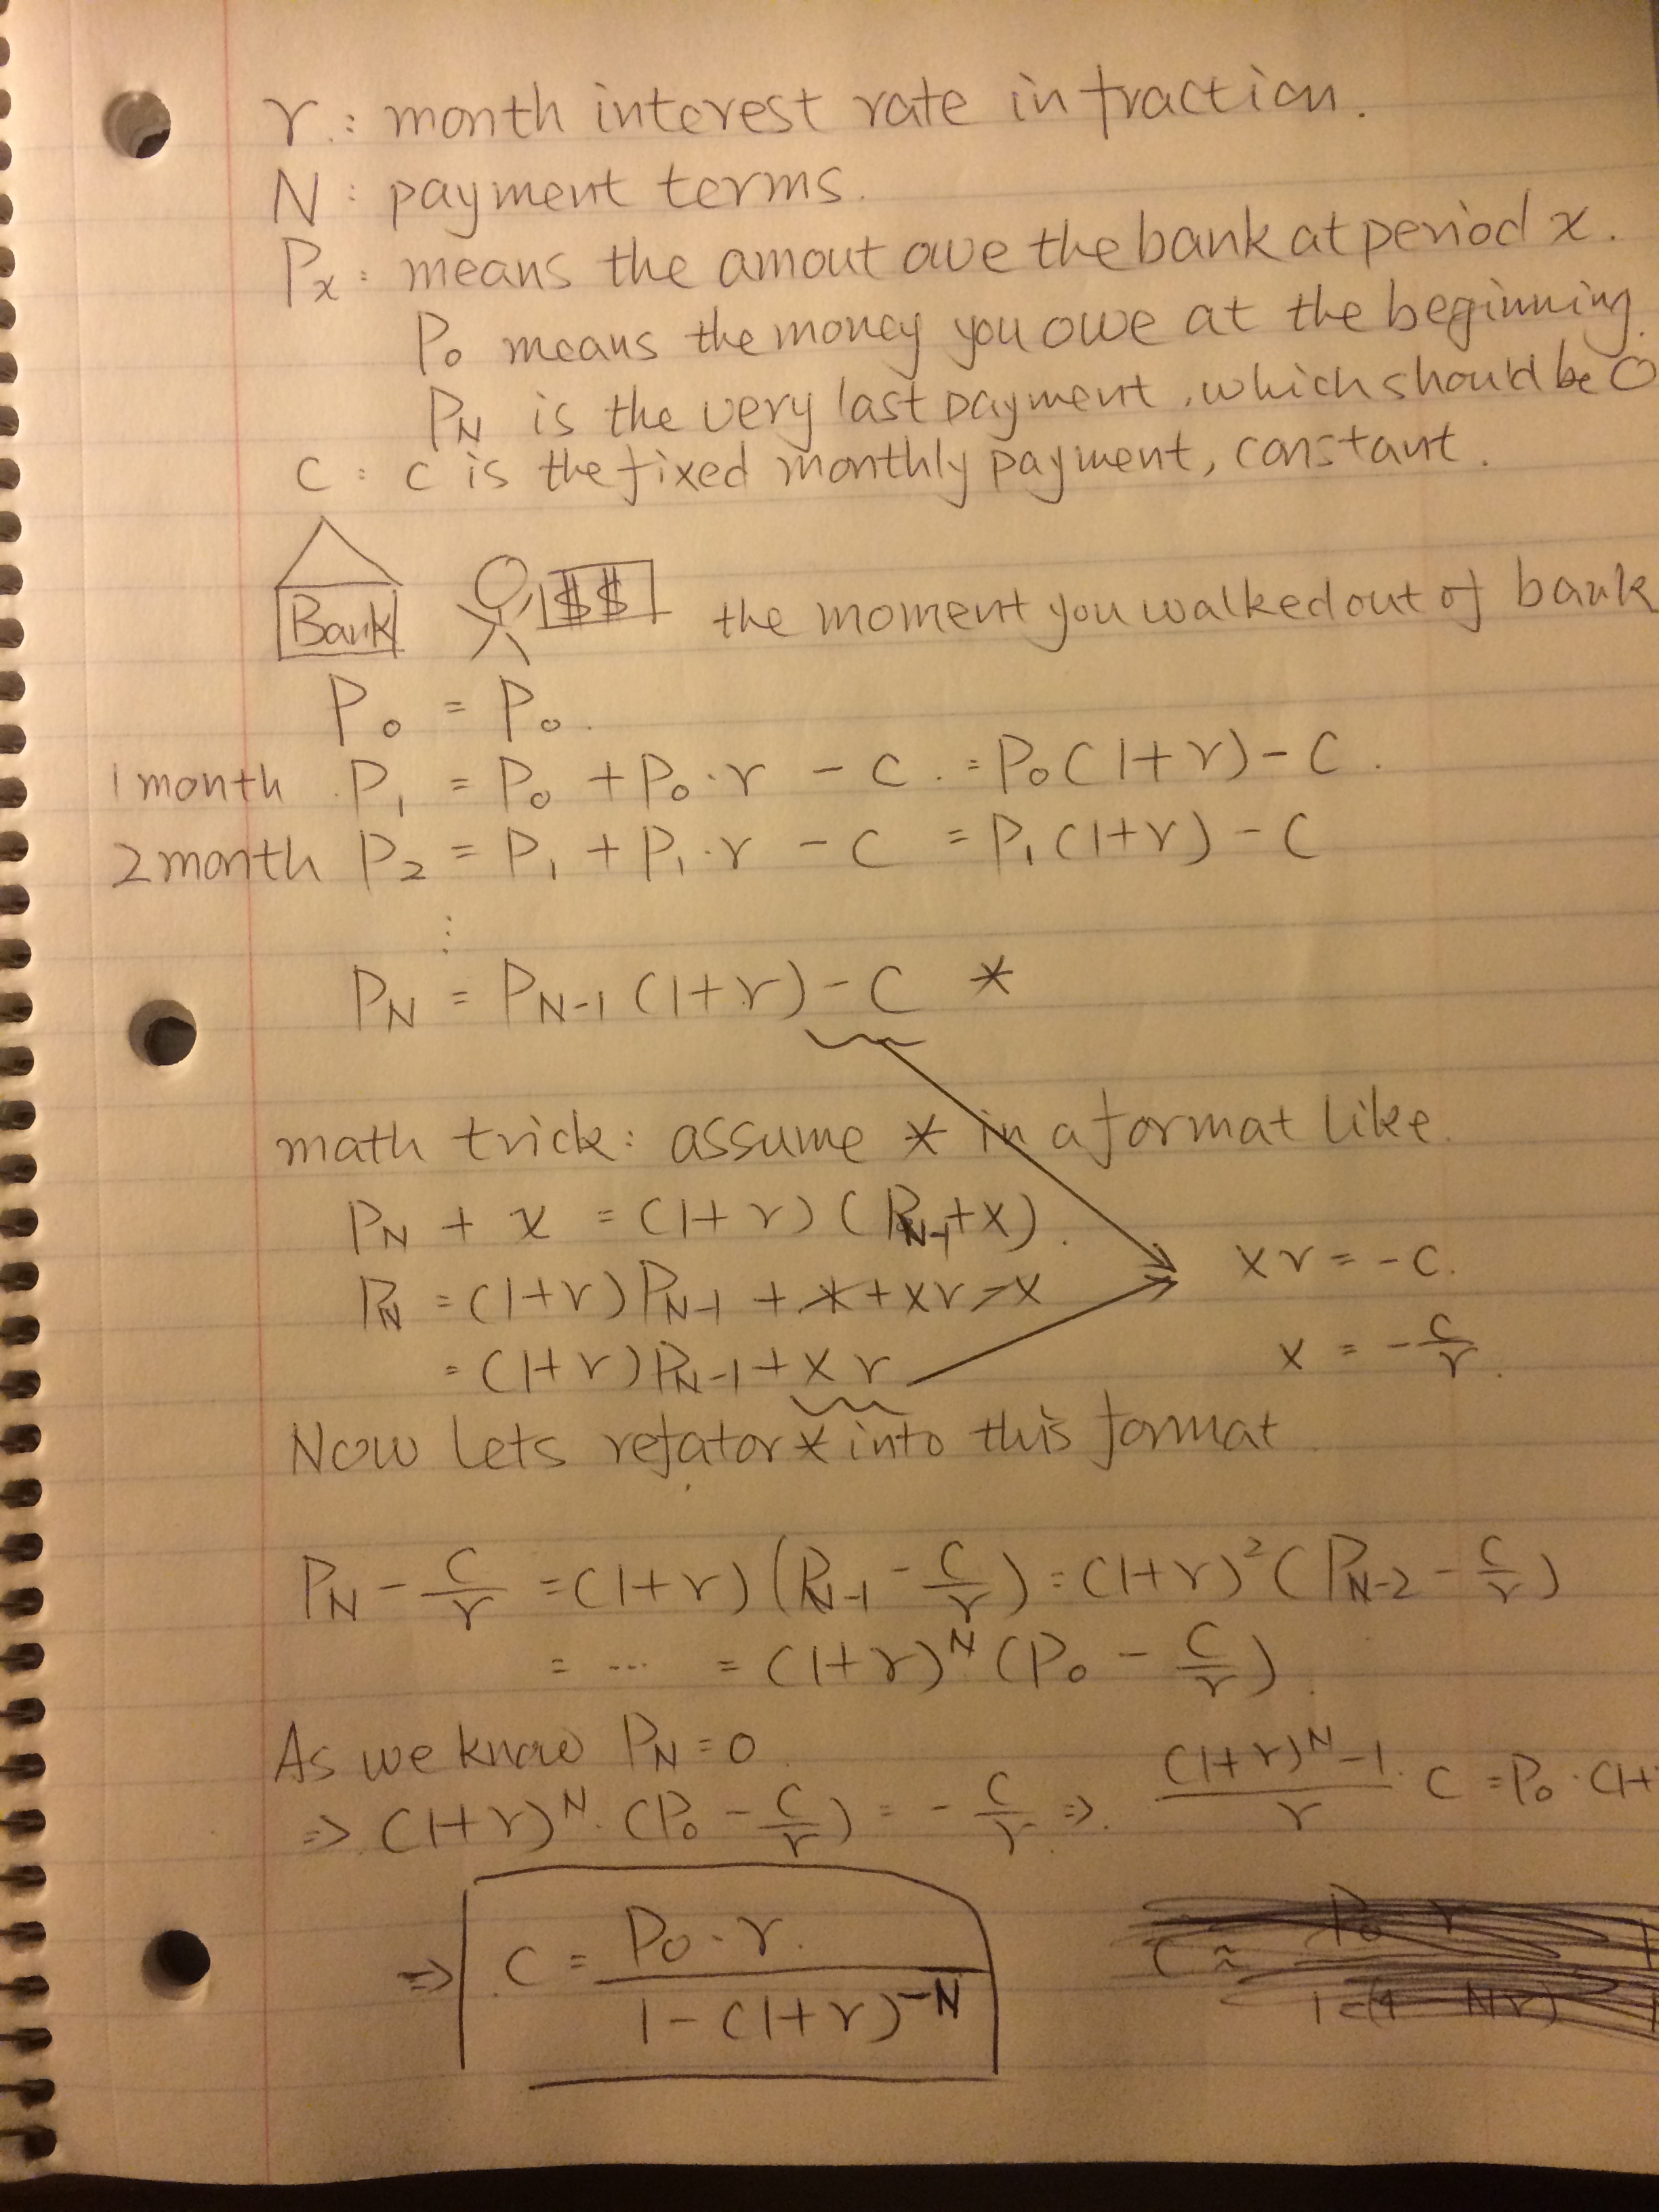 r : month interest rate in fraction.
N : payment terms.
Px : means the amout owe the bank at period x.
P0 means the money you owe at the beginning.
PN is the very last payment, which should be 0
C : C is the fixed monthly payment, constant.
Bank $$ the moment you walked out of bank
P0 = P0.
1 month P1 = P0 + P0·r - C. = P0(1+r)-C.
2 month P2 = P1 + P1·r - C = P1(1+r)-C
⋮
PN = PN-1(1+r)-C *
math trick: assume * in a format like.
PN + x = (1+r)(PN-1+x).
PN = (1+r)PN-1 + x + xr - x
xr = -C.
= (1+r)PN-1 + xr
x = -C/r.
Now Lets refator * into this format
PN - C/r = (1+r)(PN-1 - C/r) = (1+r)²(PN-2 - C/r)
= ... = (1+r)^N (P0 - C/r).
As we know PN = 0.
=> (1+r)^N·(P0 - C/r) = -C/r => ((1+r)^N - 1)/r · C = P0·(1+
=> C = P0·r. / 1-(1+r)^-N